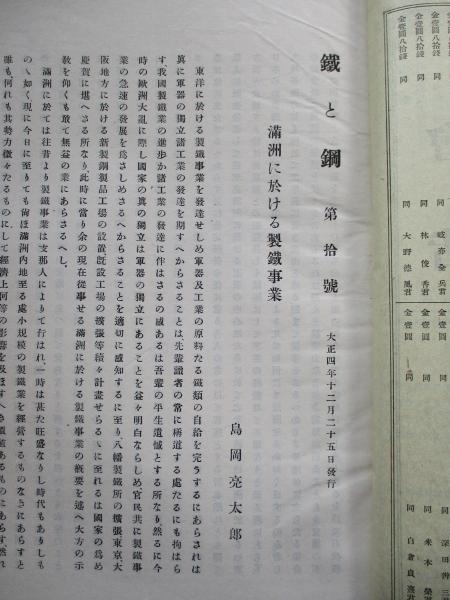 金壹圓八拾錢 同
金壹圓八拾錢 同
金壹圓八拾錢 同
金壹圓八拾錢 同
同 岐亦金兵君
同 林俊香君
同 大野德風君
金壹圓 同
金壹圓 同
同
同 米本
同 白倉良
鐵と鋼 第拾號 大正四年十二月二十五日發行
滿洲に於ける製鐵事業
島岡亮太郎
東洋に於ける製鐵事業を發達せしめ軍器及工業の原料たる鐵類の自給を完うするにあらされは
眞に軍器の獨立諸工業の發達を期すへからさることは先輩識者の常に稱道する處たるにも拘はら
す、我國製鐵業の進歩か諸工業の發達に伴はさるの感あるは吾輩の平生遺憾とする所なり然るに今
時の歐洲大亂に際し國家の眞の獨立は軍器の獨立にあることを益々明白ならしめ官民共に製鐵事
業の急速の發展を爲さしめさるへからさることを適切に感知するに至り八幡製鐵所の擴張東京大
阪地方に於ける新製鋼製品工場の設置既設工場の擴張等續々計畫せらるゝに至れるは國家の爲め
慶賀に堪へさる所なり此時に當り余の現在從事せる滿洲に於ける製鐵事業の概要を述へ大方の示
敎を仰くも敢て無益の業にあらさるへし、
滿洲に於ては往昔より製鐵事業は支那人によりて行はれ、一時は甚た旺盛なりし時代もありしも
のゝ如く現に今日に至りても尙ほ滿洲內地至る處小規模の製鐵業を經營するものなきにあらすと
雖も何れも其勢力微々たるものにして經濟上何等の影響を及ほすへき價値あるものにあらす、然れ